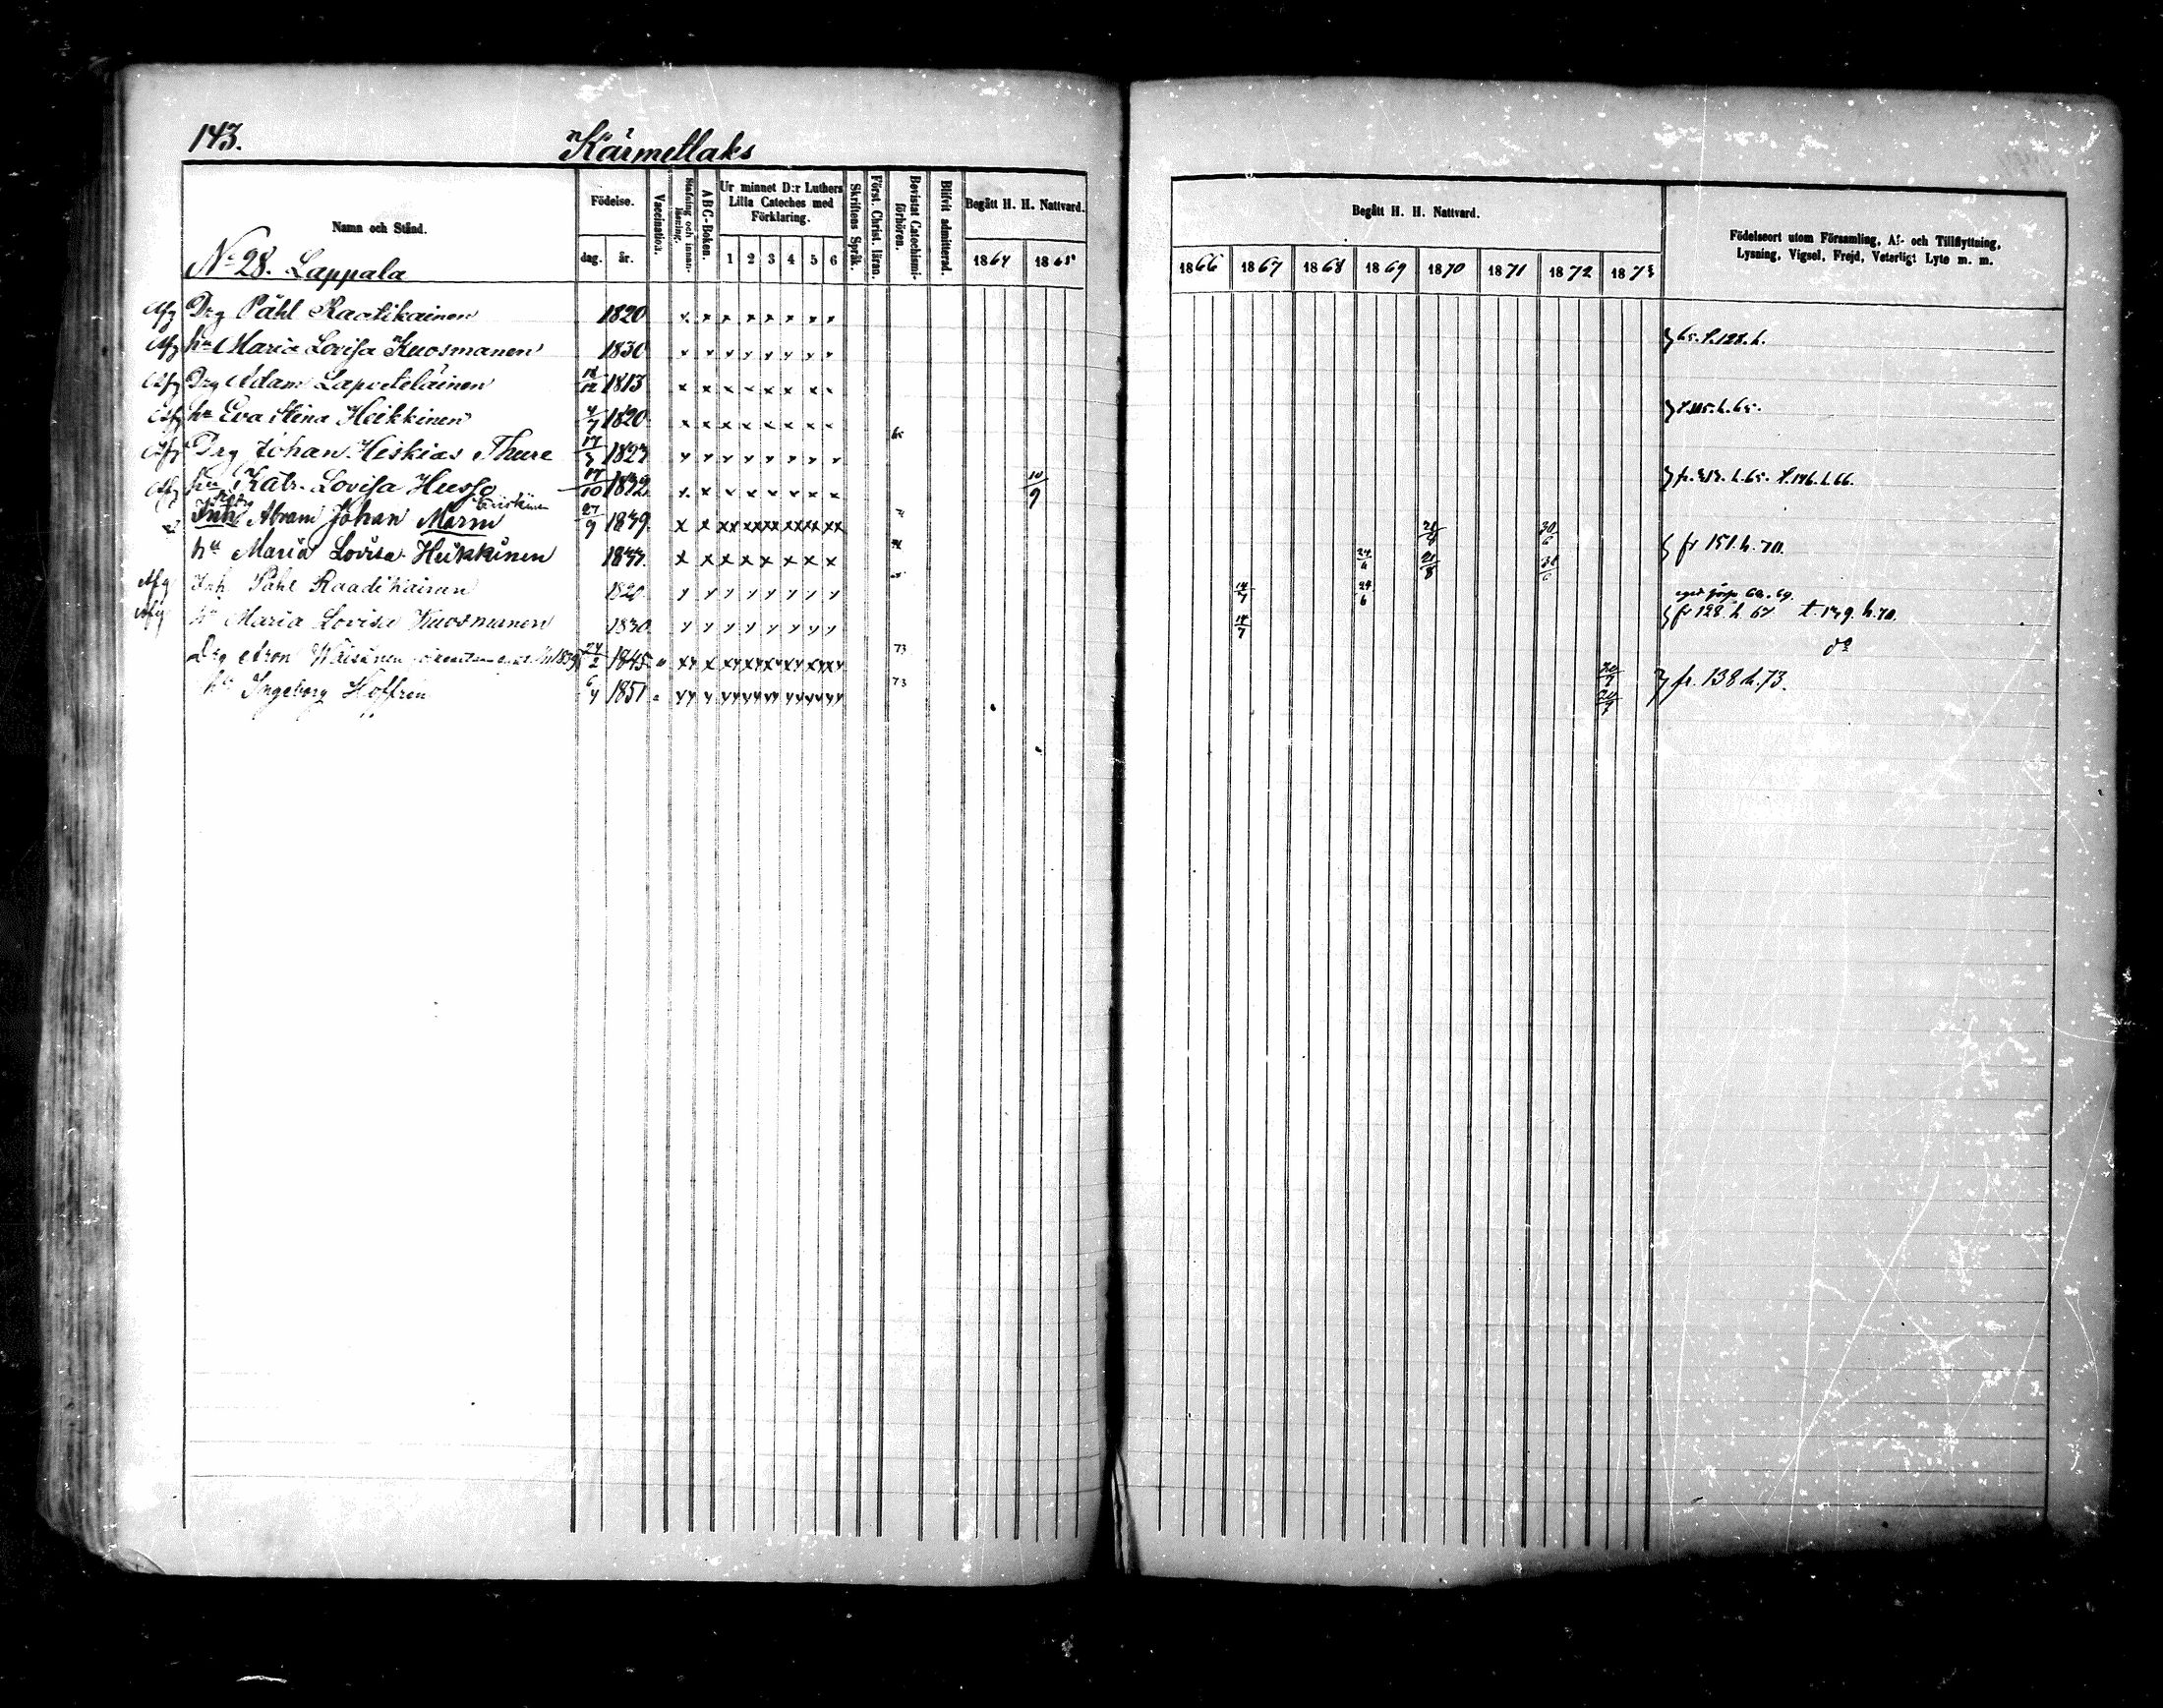 143.
Kärmetlaks
Namn och Stånd.
Födelse.
dag. år.
Vaccination.
Stafning och innan-läsning.
A B C-Boken.
Ur minnet D:r Luthers Lilla Cateches med Förklaring.
1 2 3 4 5 6
Skriftens Språk.
Först. Christ. läran.
Bevistat Catechismi-förhören.
Blifvit admitterad.
Begått H. H. Nattvard.
1864 1865
Begått H. H. Nattvard.
1866 1867 1868 1869 1870 1871 1872 1873
Födelseort utom Församling, Af- och Tillflyttning, Lysning, Vigsel, Frejd, Veterligt Lyte m. m.
No 28. Lappala
Afg Drg Påhl Raatikainen 1820
Afg hu Maria Lovisa Kuosmanen 1830 65. t. 128. h.
Afg Drg Adam Lapveteläinen 1813
Afg hu Eva Stina Heikkinen 4/7 1820
Afg Drg Johan Heskias Thure 1827 65
Afg hu Katr. Lovisa Husso 17/10 1832 10/9 t. 146. h. 66.
Inh Abram Johan Marin 27/9 1839 30/6
hu Maria Lovisa Heikkinen 21/8 fr 151. h. 70.
Afg Inh Påhl Raadikainen 1820 14/7 24/6
Afg hu Maria Lovisa Kuosmanen 1830 14/7 fr 128. h 67 t. 149. h. 70.
Drg Aron Wäisänen 24/2 1845 73 20/7 do
hu Ingeborg Hoffren 6/4 1851 73 20/7 fr. 138 h. 73.